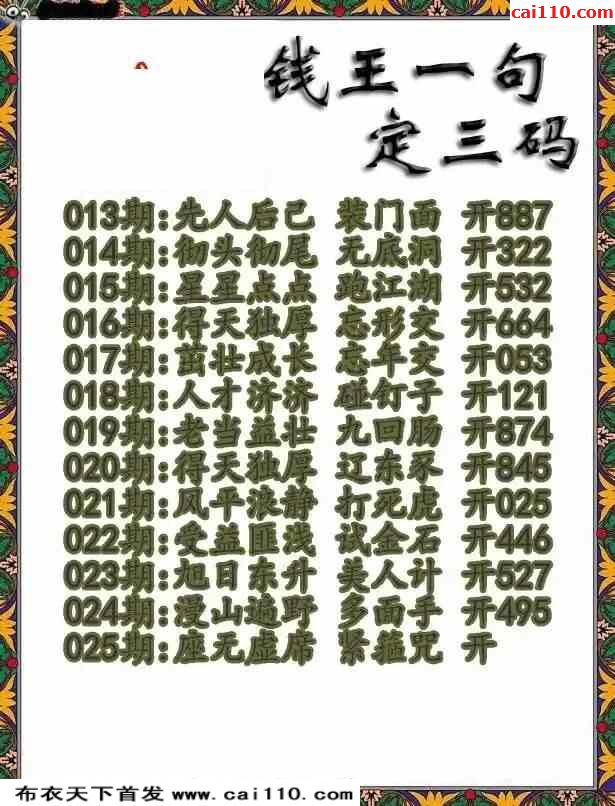 cai110.com
钱王一句
定三码
013期:先人后己 装门面 开887
014期:彻头彻尾 无底洞 开322
015期:星星点点 跑江湖 开532
016期:得天独厚 忘形交 开664
017期:茁壮成长 忘年交 开053
018期:人才济济 碰钉子 开121
019期:老当益壮 九回肠 开874
020期:得天独厚 辽东豕 开845
021期:风平浪静 打死虎 开025
022期:受益匪浅 试金石 开446
023期:旭日东升 美人计 开527
024期:漫山遍野 多面手 开495
025期:座无虚席 紧箍咒 开
布衣天下首发 www.cai110.com